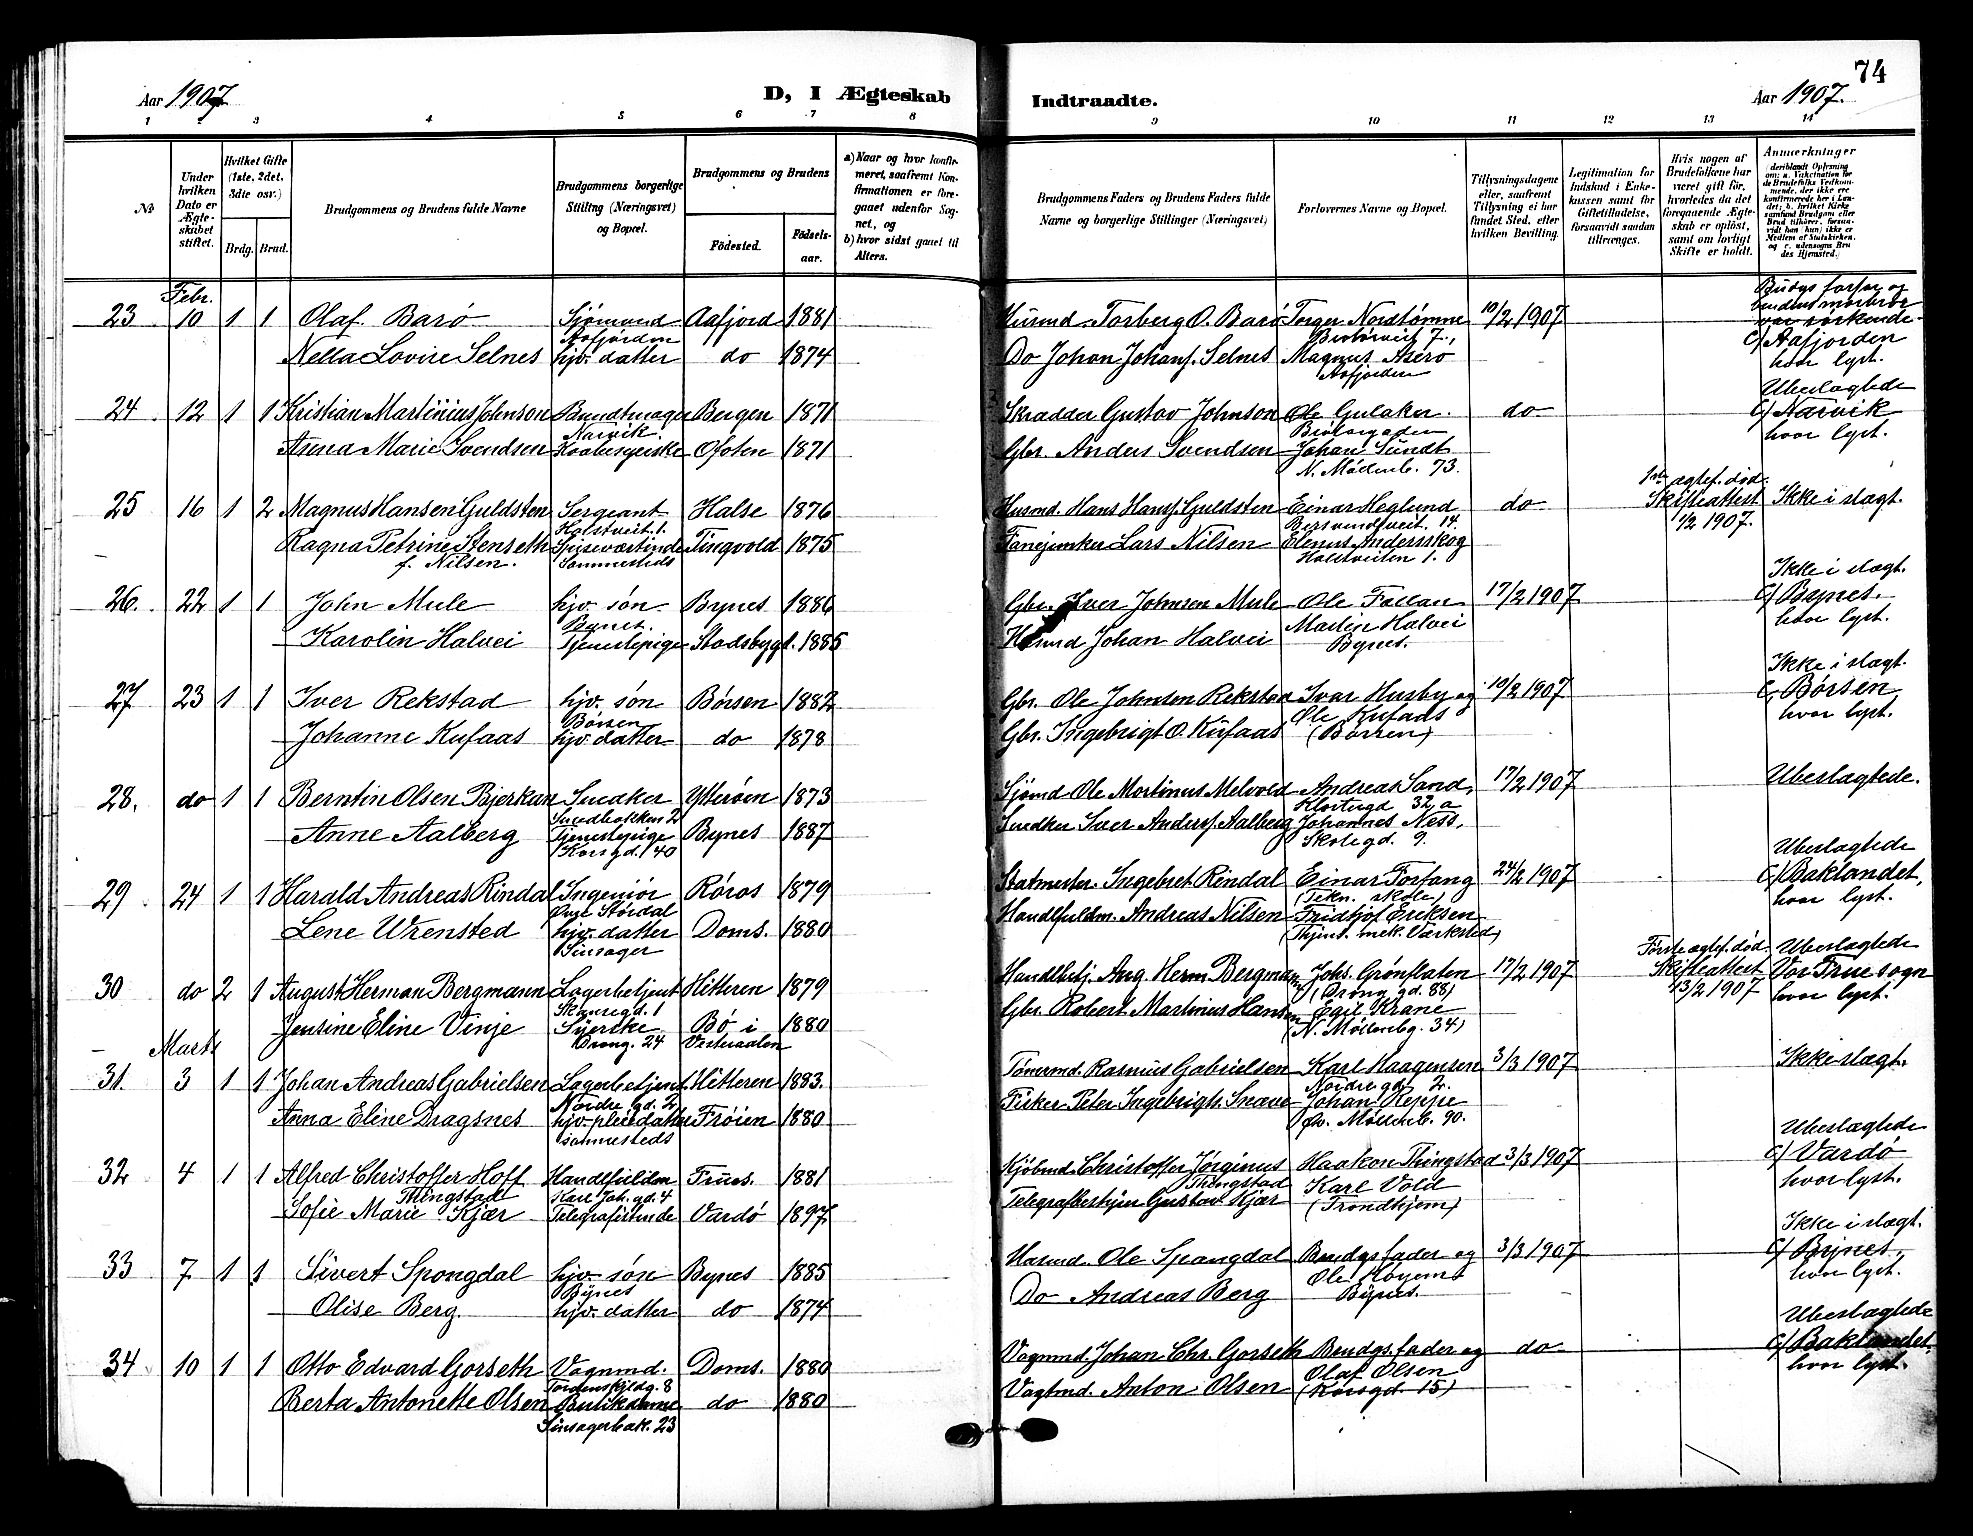 74
Aar 1907
D, I Ægteskab
Indtraadte.
Aar 1907.
1 2 3 4 5 6 7 8 9 10 11 12 13 14
№
Under hvilken Dato er Ægteskabet stiftet.
Hvilket Gifte (1ste, 2det, 3dte osv.)
Brdg. Brud.
Brudgommens og Brudens fulde Navne
Brudgommens borgerlige Stilling (Næringsvei) og Bopæl.
Brudgommens og Brudens
Födested.
Födselsaar.
a) Naar og hvor konfirmeret, saafremt Konfirmationen er foregaaet udenfor Sognet, og
b) hvor sidst gaaet til Alters.
Brudgommens Faders og Brudens Faders fulde Navne og borgerlige Stillinger (Næringsvei)
Forlovernes Navne og Bopæl.
Tillysningsdagene eller, saafremt Tillysning ei har fundet Sted, efter hvilken Bevilling.
Legitimation for Indskud i Enkekassen samt for Giftetilladelse, forsaavidt saadan tiltrænges.
Hvis nogen af Brudefolkene har været gift før, hvorledes da det foregaaende Ægteskab er opløst, samt om lovligt Skifte er holdt.
Anmærkninger (deriblandt Oplysning om: a. Vakcination for de Brudefolks Vedkommende, der ikke ere konfirmerede her i Landet; b. hvilket Kirkesamfund Brudgom eller Brud tilhører, forsaavidt han (hun) ikke er Medlem af Statskirken, og c. udensogns Brudes Hjemsted.)
Febr.
23 10 1 1 Olaf Barö Sjömand Aafjord 1881 Husmd. Torberg O. Barö Torger Nordtömme 10/2 1907 Brudgs farfar og
Aafjorden Brotörveit 7., brudens morbror
Nella Lovise Selnes hjv. datter do 1874 Do Johan Johans. Selnes Magnus Aserö var sörkende
Aafjorden c/ Aafjorden
hvor lyst.
24 12 1 1 Kristian Martinius Johnson Bundtmager Bergen 1871 Skrædder Gustav Johnson Ole Gulaker do Ubeslægtede
Narvik. c/ Narvik
Asena Marie Svendsen Ofoten 1871 Gbr. Anders Svendsen Johan Sundt hvor lyst.
N. Möllenb. 73.
25 16 1 2 Magnus Hansen Guldsten Sergeant Halse 1876 Husmd. Hans Hans. Guldsten Einar Heglund do 1ste ægtef. död. Ikke i slægt.
Holstveit. 1. Bersvendsveit. 14. Skifteattest
Ragna Petrine Stenseth Spiseværtinde Tingvold 1875 Fanejunker Lars Nilsen Elenus Andersskog 1/2 1907.
f. Nilsen. Sammesteds Holstveiten 1.
26. 22 1 1 John Mule hjv. søn Bynes 1886 Gbr. Iver Johnsen Mule Ole Fallan 17/2 1907 Ikke i slægt.
Bynes. Martin Halvei c/ Bynes.
Karolin Halvei Tjenestepige Stadsbygd. 1885 Husmd Johan Halvei Bynes. hvor lyst.
27 23 1 1 Iver Rekstad hjv. søn Börsen 1882 Gbr. Ole Johnsen Rekstad Ivar Husby og 10/2 1907 Ikke i slægt.
Börsen Ole Kufaas c/ Börsen,
Johanne Kufaas hjv. datter do 1878 Gbr. Ingebrigt O. Kufaas (Börsen) hvor lyst.
28. do 1 1 Berntin Olsen Bjerkan Snedker Ytteröen 1873 Sjömd Ole Martinus Melvold Andreas Sand, 17/2 1907 Ubeslægtede.
Smedbakken 2 Klostergd 32 a
Anne Aalberg Tjenestepige Bynes 1887 Snedker Iver Anders. Aalberg Johannes Ness,
Korsgd. 40 Skolegd. 9.
29 24 1 1 Harald Andreas Rindal Ingeniör Röros 1879 Statmester. Ingebret Rindal Einar Forfang 24/2 1907 Ubeslægtede
Övre Stördal (Tekn. skole) c/ Baklandet,
Lene Wrensted hjv. datter Doms. 1880 Handlfuldm. Andreas Nilsen Fridtjof Eriksen hvor lyst.
Sinsager (Thjems mek. Værksted)
30 do 2 1 August Herman Bergmann Lagerbetjent Hitteren 1879 Handlbetj. Aug. Herm. Bergmann Johs. Grönflaten 17/2 1907 Förste ægtef. död. Ubeslægtede
Skansegd. 1 (Drong. gd. 88) Skifteattest Vor Frue sogn
Jensine Eline Vinje Syerske Bö i 1880 Gbr. Robert Martinus Hansen Egil Krane 13/2 1907 hvor lyst.
Drong. 24 Vesteraalen (N. Möllenbg. 34)
Marts
31. 3 1 1 Johan Andreas Gabrielsen Lagerbetjent Hitteren 1883. Tömmermd. Rasmus Gabrielsen Karl Haagensen 3/3 1907 Ikke i slægt.
Nordre gd. 2 Nordre gd. 2.
Anna Eline Dragsnes hjv. pleiedatter Fröien 1880 Fisker Peter Ingebrigts. Johan Reppe
sammesteds Öv. Möllenb. 90.
32 4 1 1 Alfred Christoffer Hoff Handlfuldm Frues. 1881 Kjöbmd. Christoffer Jörginus Haakon Thingstad 3/3 1907 Ubeslægtede
Thingstad Karl Joh. gd. 4 Thingstad Karl Vold c/ Vardö
Sofie Marie Kjær Telegrafistinde Vardö 1897 Telegrafbestyrer Gustav Kjær (Trondhjem) hvor lyst.
33 7 1 1 Sivert Spongdal hjv. søn Bynes 1885 Husmd. Ole Spangdal Brudgs fader og 3/3 1907 Ikke i slægt.
Bynes Ole c/ Bynes,
Olise Berg. hjv. datter do 1874 Do Andreas Berg Bynes. hvor lyst.
34 10 1 1 Otto Edvard Gorseth Vognmd. Doms. 1880 Vognmd. Johan Chr. Gorseth Brudgs. fader og do Ubeslægtede
Tordenskjoldg. 8 Olaf Olsen c/ Baklandet,
Berta Antonette Olsen Butikdame do 1880 Vagtmd. Anton Olsen (Korsgd. 15) hvor lyst.
Sinsagerbak. 23